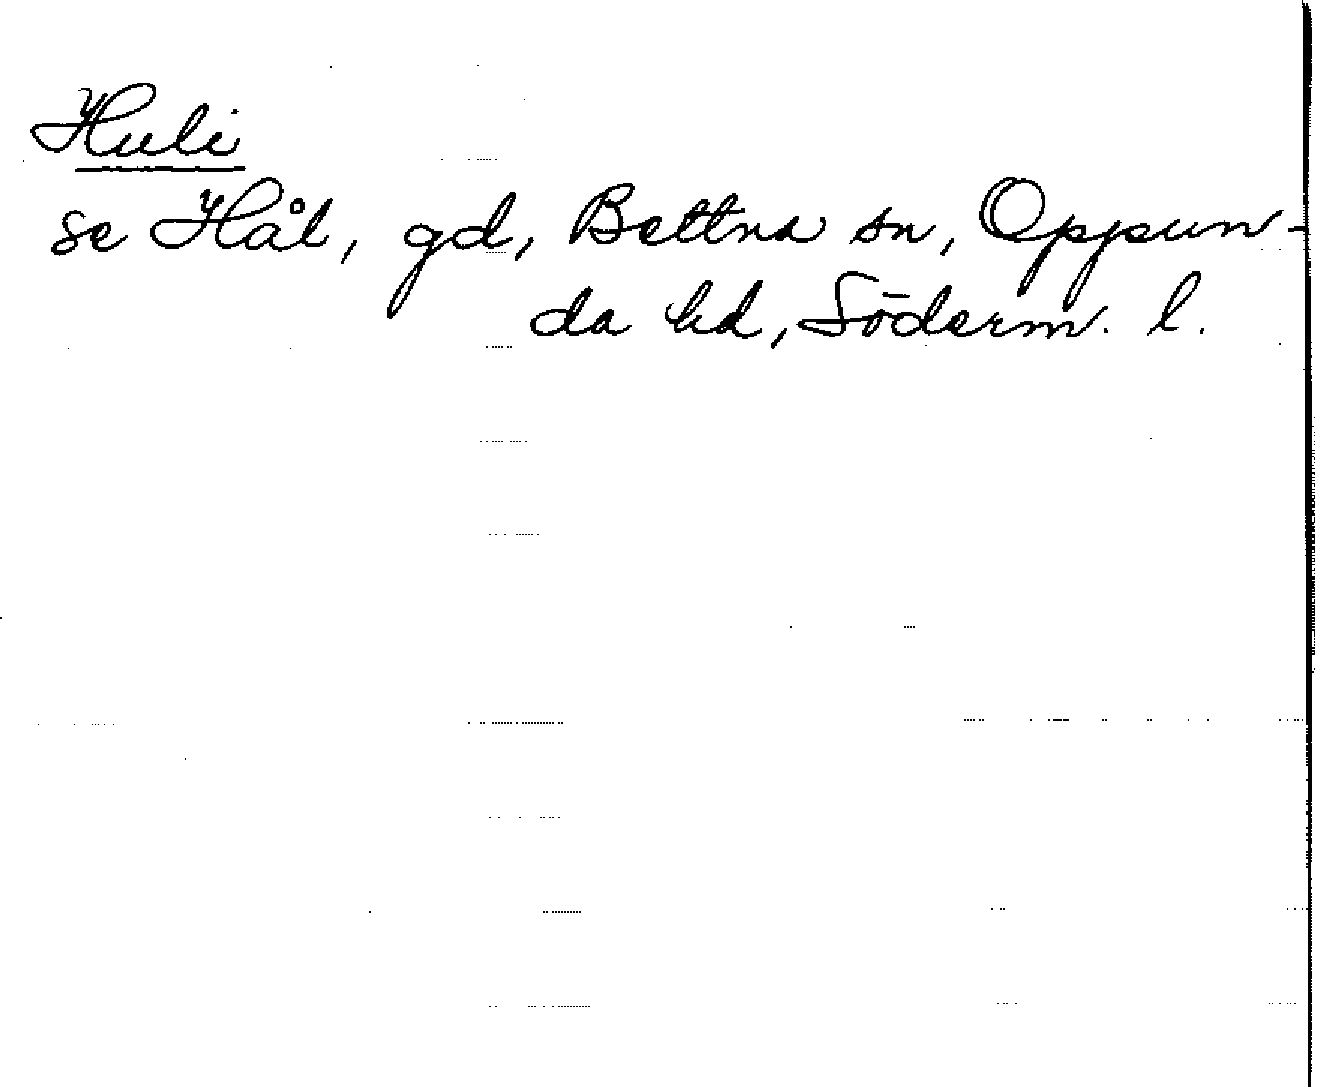 Huli
se Hål, gd, Bettna sn, Oppun-
da hd, Söderm. l.